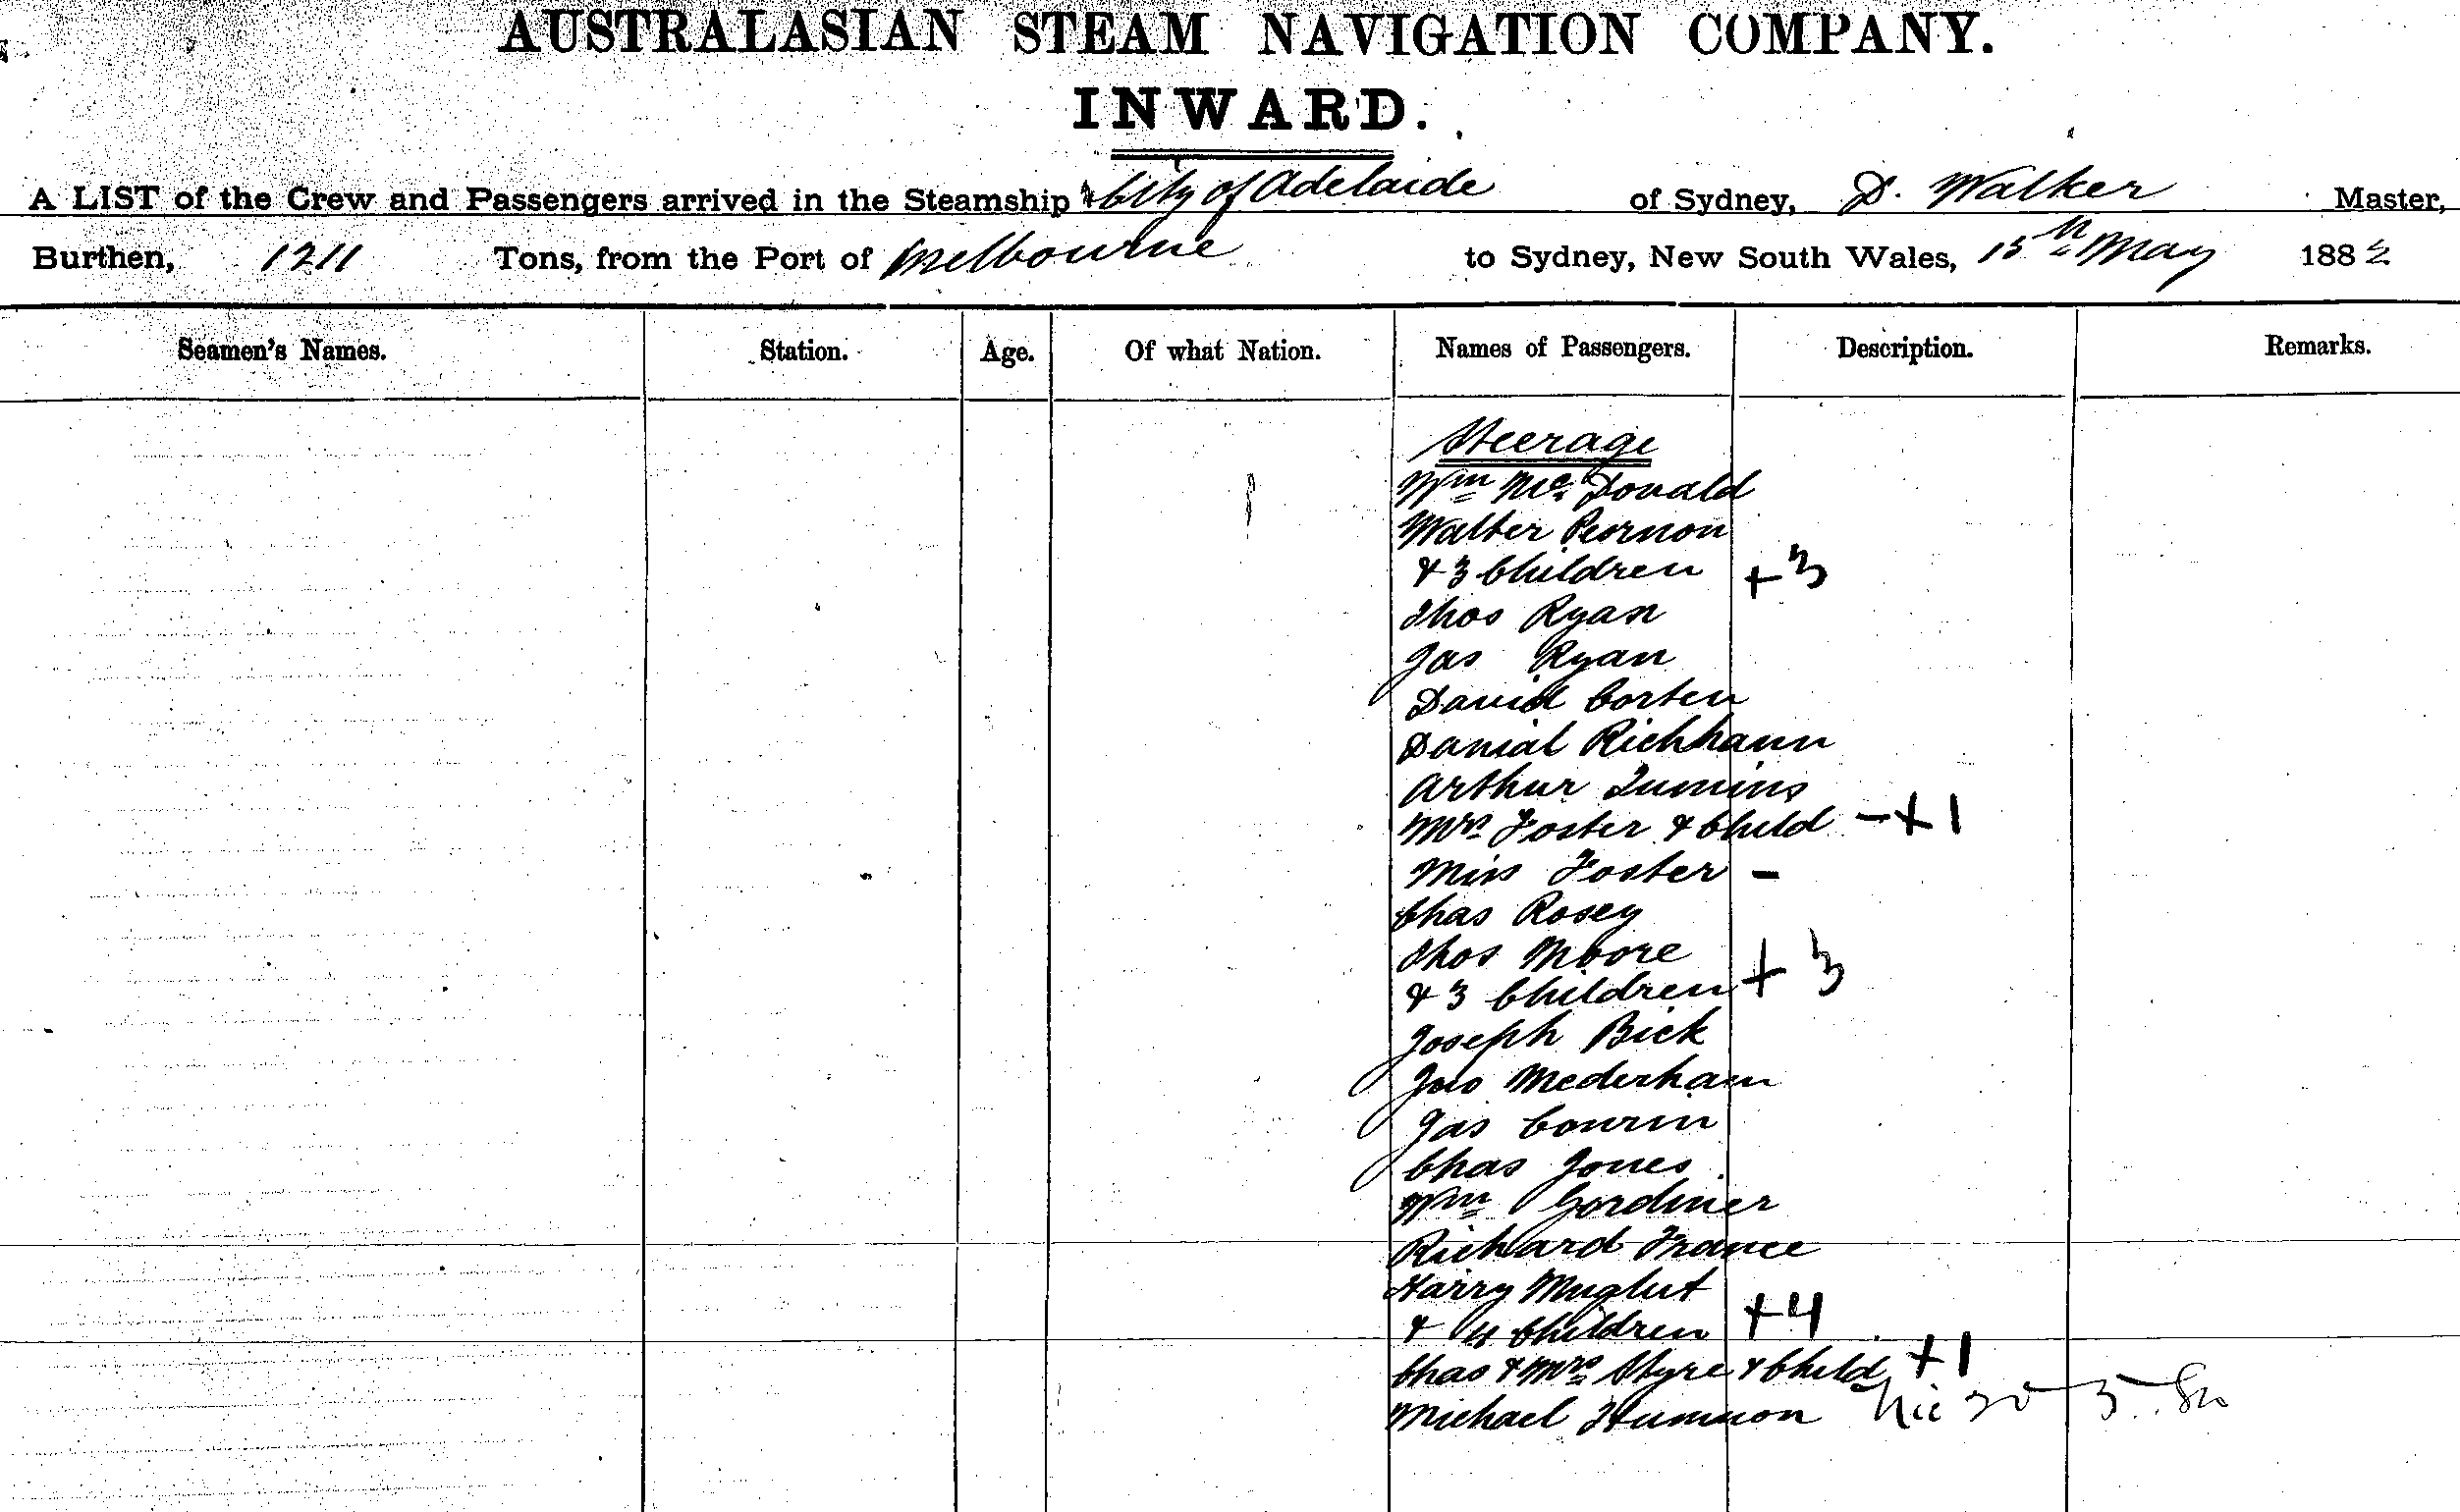 AUSTRALASIAN STEAM NAVIGATION COMPANY.
INWARD.
A LIST of the Crew and Passengers arrived in the Steamship City of Adelaide of Sydney, D. Walker Master,
Burthen, 1211 Tons, from the Port of Melbourne to Sydney, New South Wales, 15th May 1882
Seamen's Names. Station. Age. Of what Nation. Names of Passengers. Description. Remarks.
Steerage
Wm McDonald
Walter
& 3 Children +3
Thos Ryan
Jas Ryan
David Corten
Danial Richhann
Arthur
Mrs Foster & Child - +1
Miss Foster -
Chas Rosey
Thos Moore
& 3 Children + 3
Joseph Bick
Jno Mederham
Jas
Chas Jones
Wm Gordiner
Richard France
Harry
& 4 Children +4
Chas & Mrs Styre & Child +1
Michael